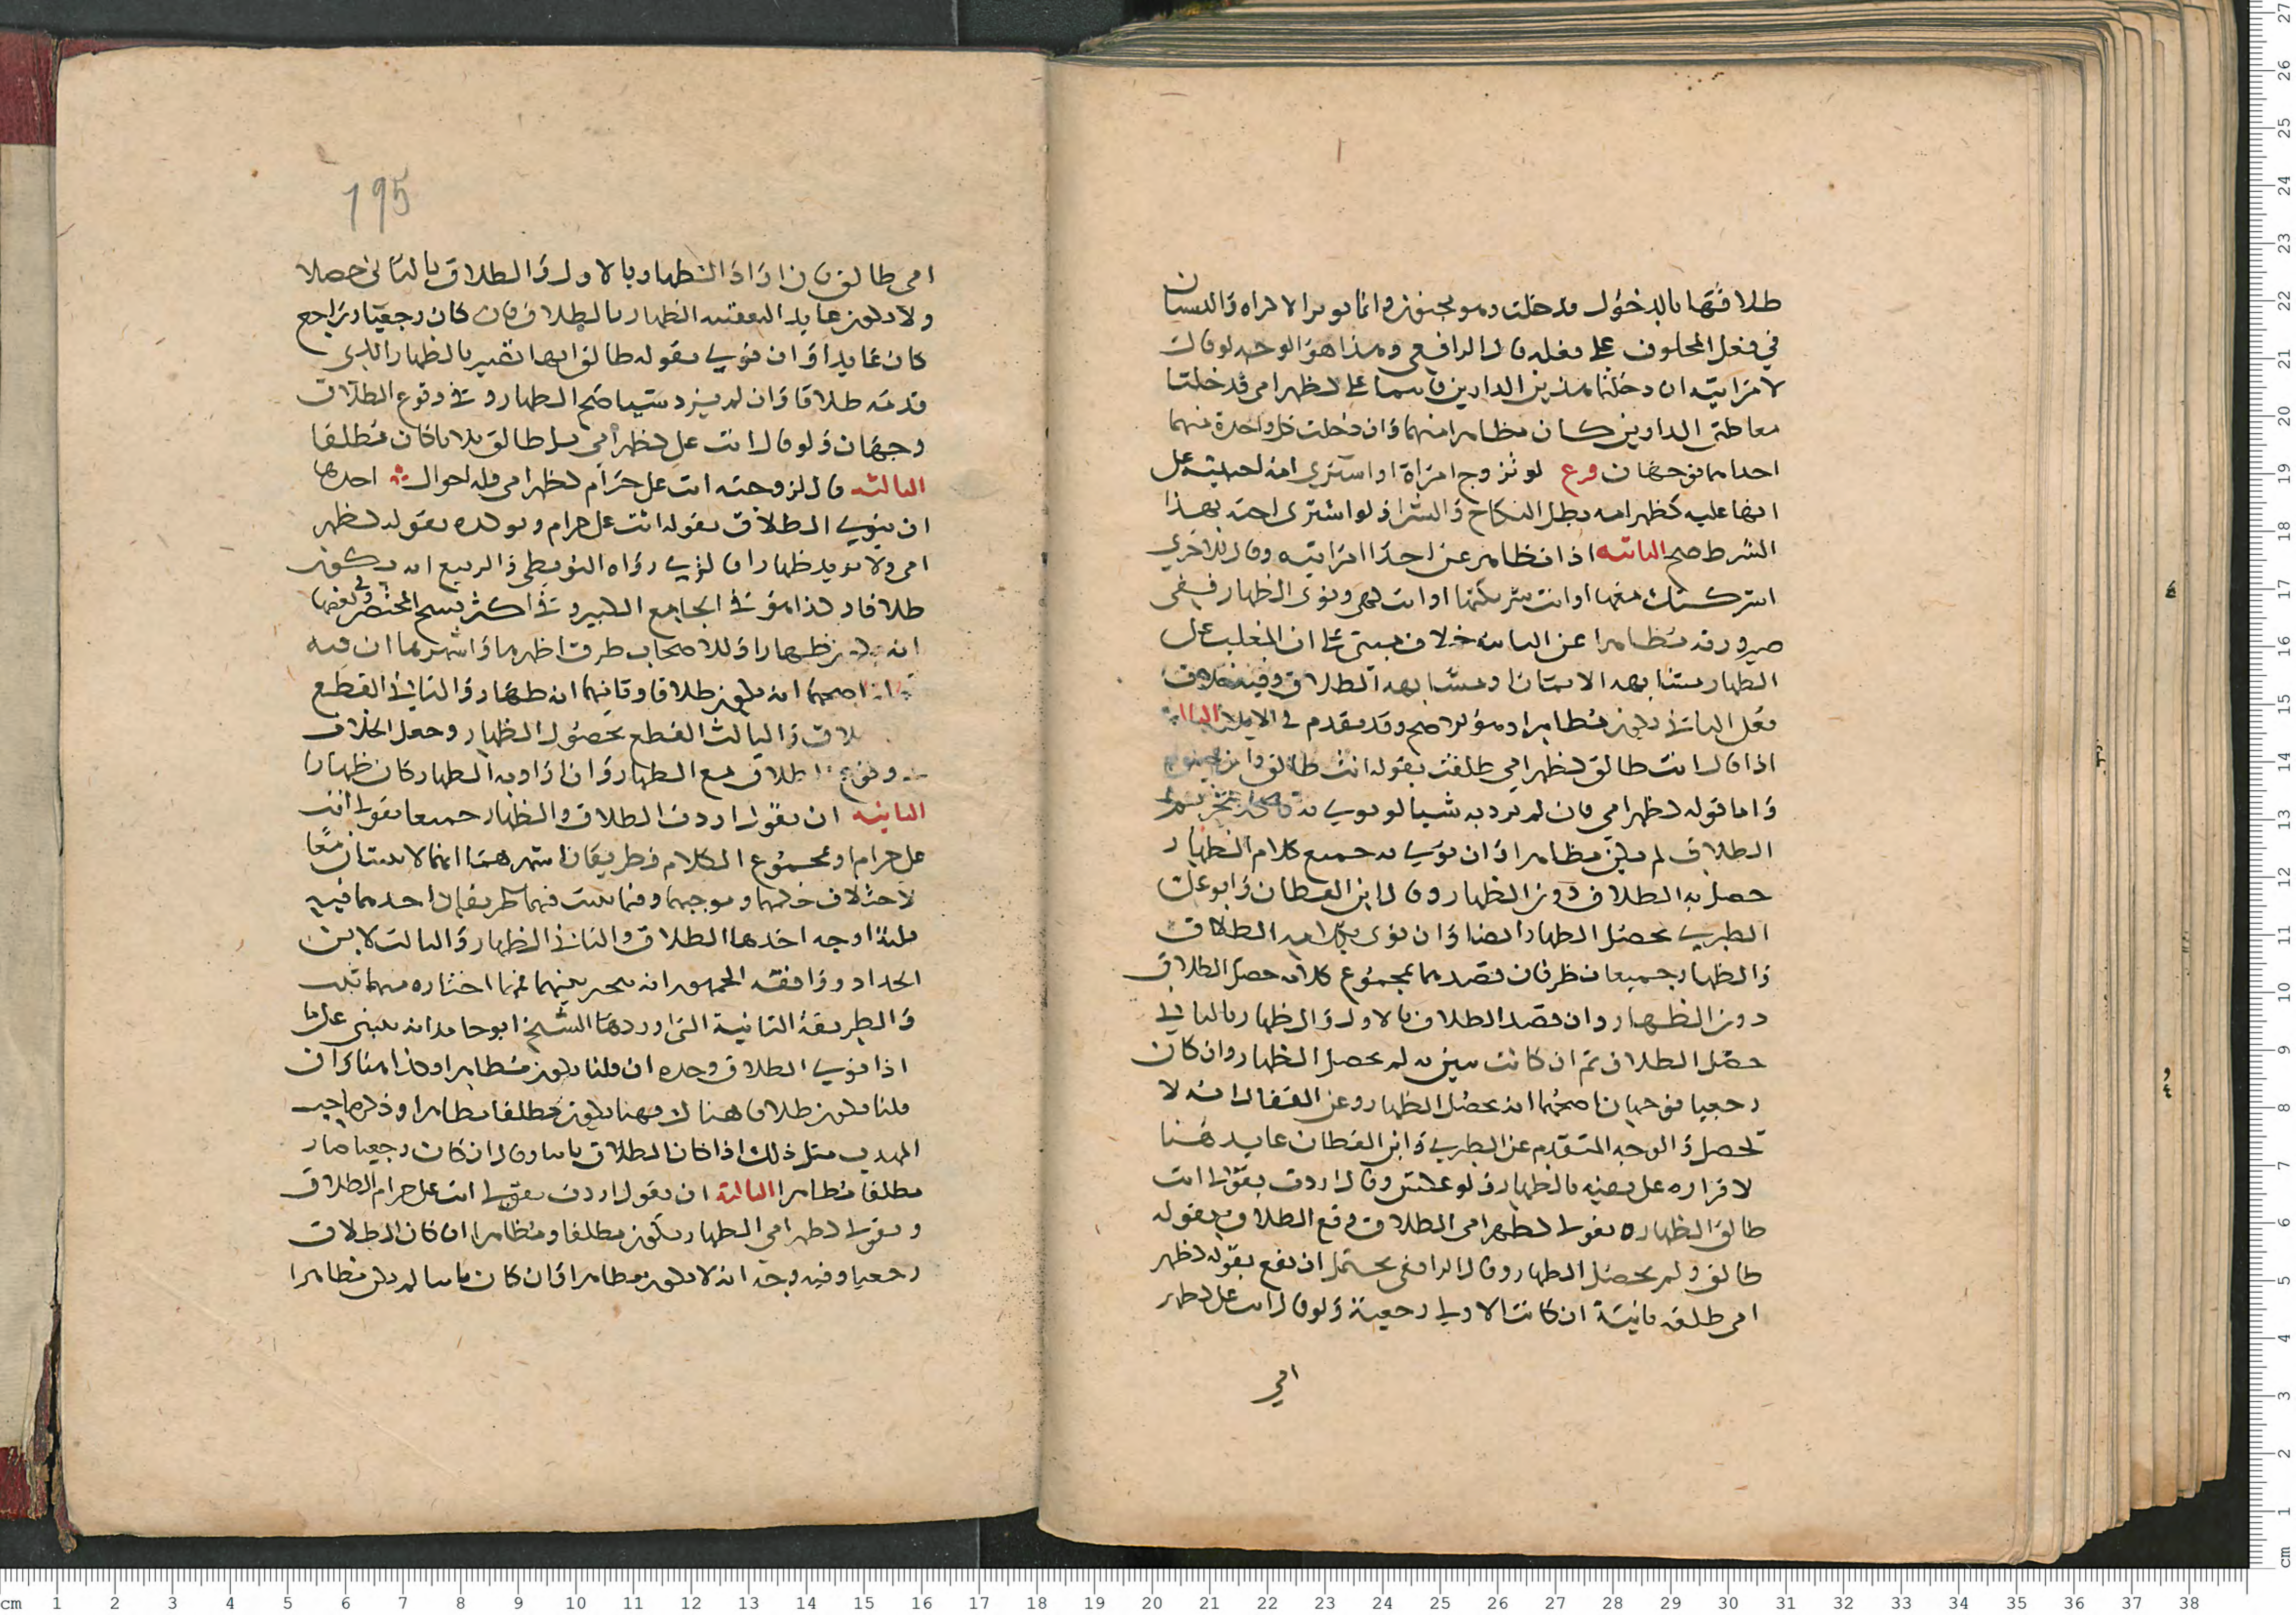 طلاقها بالدخول فدخلت وهو مجنون وانما يوثر الاكراه والنسيان
في فعل المحلوف على فعله قال الرافعي وهذا هو الوجه لو قال
لامراتيه ان دخلتما هذين الدارين فانتما علي كظهر امي فدخلتا
معا كلتى الدارين كان مظاهرا منهما وان دخلت كل واحدة منهما
احداهما فوجهان فرع لو تزوج امراة او اشترى امة
انها عليه كظهر امه بطل النكاح والشرا ولو اشترى امته بهذا
الشرط صح الثانية اذا ظاهر عن احدا امراتيه وقال للاخرى
اشركتك معها او انت شريكتها او انت كهي ونوى الظهار ففي
صيرورته مظاهرا عن الثانية خلاف مبني على ان المغلب على
الظهار مشابهة الايمان او مشابهة الطلاق وفيه خلاف
فعلى الثاني يكون مظاهرا وهو الاصح وقد تقدم في الايلا الثالثة
اذا قال انت طالق كظهر امي طلقت بقوله انت طالق وان
واما قوله كظهر امي فان لم يرد به شيا او نوى به
الطلاق لم يكن مظاهرا وان نوى به جميع كلام الظهار
حصل به الطلاق دون الظهار وقال ابن القطان وابو علي
الطبري يحصل الظهار ايضا وان نوى بكلامه الطلاق
والظهار جميعا نظر فان قصدهما بمجموع كلامه حصل الطلاق
دون الظهار وان قصد الطلاق بالاول والظهار بالثاني
حصل الطلاق ثم ان كانت تبين به لم يحصل الظهار وان كان
رجعيا فوجهان اصحهما انه يحصل الظهار وعن القفال انه لا
يحصل والوجه المتقدم عن الطبري وابن القطان عايد هنا
لاقراره على نفسه بالظهار ولو عكس وقال اردت بقولي انت
طالق الظهار وبقولي كظهر امي الطلاق وقع الطلاق بقوله
طالق ولم يحصل الظهار وقال الرافعي يحتمل ان يقع بقوله كظهر
امي طلقة ثانية ان كانت الاولى رجعية ولو قال انت علي كظهر
امي
195
امي طالق فان اراد الظهار بالاول والطلاق بالثاني حصلا
ولا يكون عايدا لتعقيبه الظهار بالطلاق فان كان رجعيا وراجع
كان عايدا وان نوى بقوله طالق انها تصير بالظهار الذي
قدمه طلاقا وان لم يرد شيا صح الظهار وفي وقوع الطلاق
وجهان ولو قال انت علي كظهر امي بل طالق ثلاثا كان مطلقا
الثالثة قال لزوجته انت علي حرام كظهر امي فله احوال احدها
ان ينوي الطلاق بقوله انت علي حرام وبقوله كظهر
امي ولا يريد ظهارا فالذي رواه البويطي والربيع انه يكون
طلاقا وكذا هو في الجامع الكبير وفي اكثر نسخ المختصر وفي بعضها
انه يكون ظهارا وللاصحاب طرق اظهرها واشهرها ان فيه
اصحهما انه يكون طلاقا وثانيهما انه ظهار والثاني القطع
والثالث القطع بحصول الظهار وجعل الخلاف
وقوع الطلاق مع الظهار وان اراد به الظهار كان ظهارا
الثانية ان يقول اردت الطلاق والظهار جميعا بقولي انت
علي حرام او بمجموع الكلام فطريقان اشهرهما انهما لا يثبتان معا
لاختلاف حكمهما وموجبهما وفيما يثبت فيهما طريقان احدهما فيه
ثلاثة اوجه احدها الطلاق والثاني الظهار والثالث لابن
الحداد ووافقه الجمهور انه يخير بينهما فايهما اختاره منهما ثبت
والطريقة الثانية التي اوردها الشيخ ابو حامد انه يبنى على ما
اذا نوى الطلاق وحده ان قلنا يكون مظاهرا وكذا هنا وان
قلنا يكون طلاقا هناك فههنا يكون مطلقا مظاهرا وذكر صاحب
المهذب مثل ذلك اذا كان الطلاق باينا وقال ان كان رجعيا صار
مطلقا مظاهرا الثالثة ان يقول اردت بقولي انت علي حرام الطلاق
وبقولي كظهر امي الظهار يكون مطلقا ومظاهرا ان كان الطلاق
رجعيا وفيه وجه انه لا يكون مظاهرا وان كان باينا لم يكن مظاهرا